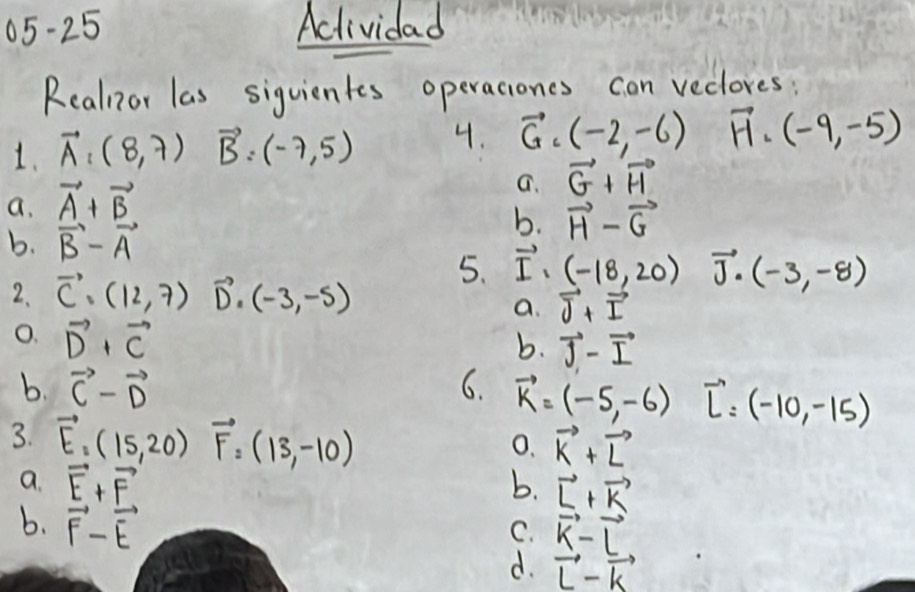 05-25
Actividad
Realizar las siguientes operaciones con vectores:
1. A⃗ : (8,7) B⃗ : (-7,5)
a. A⃗ + B⃗
b. B⃗ - A⃗
2. C⃗ : (12,7) D⃗ : (-3,-5)
a. D⃗ + C⃗
b. C⃗ - D⃗
3. E⃗ : (15,20) F⃗ : (13,-10)
a. E⃗ + F⃗
b. F⃗ - E⃗
4. G⃗ : (-2,-6) H⃗ : (-9,-5)
a. G⃗ + H⃗
b. H⃗ - G⃗
5. I⃗ : (-18,20) J⃗ : (-3,-8)
a. J⃗ + I⃗
b. J⃗ - I⃗
6. K⃗ = (-5,-6) L⃗ : (-10,-15)
a. K⃗ + L⃗
b. L⃗ + K⃗
c. K⃗ - L⃗
d. L⃗ - K⃗